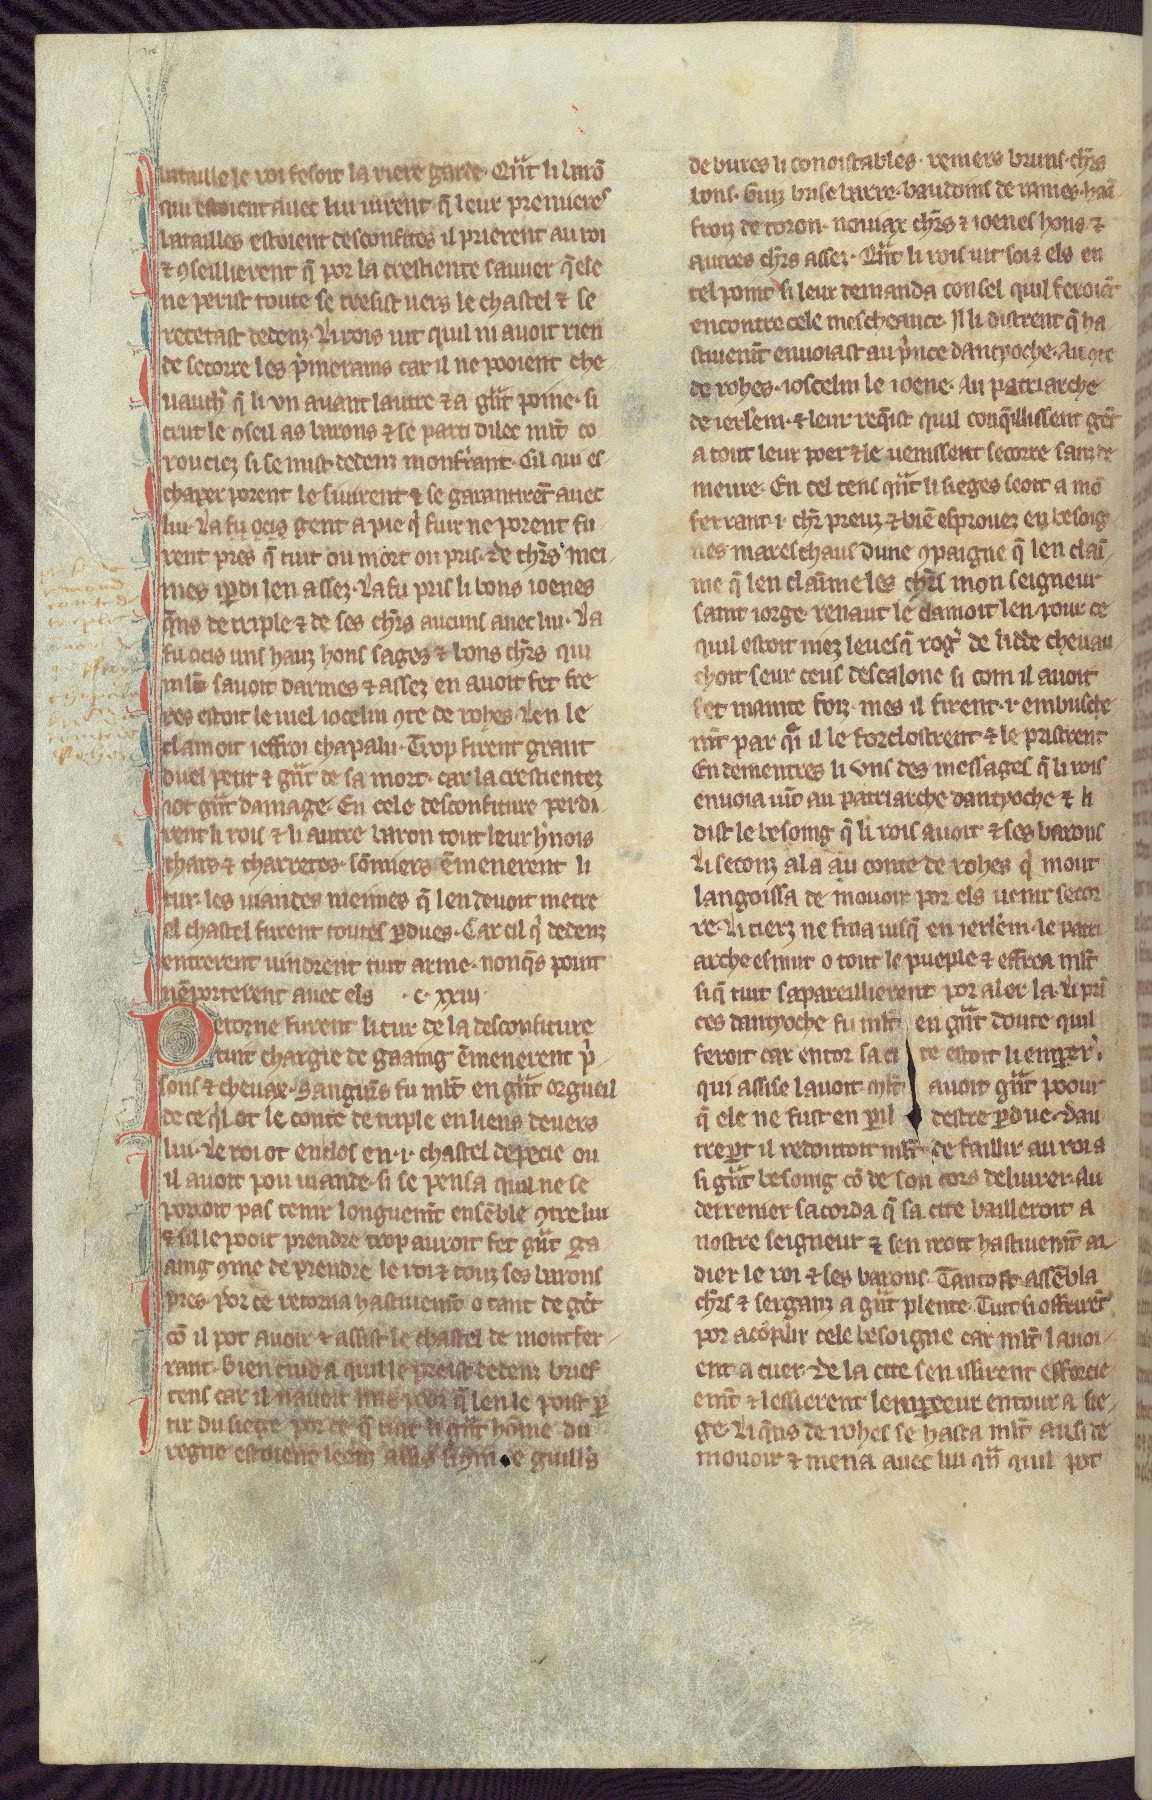 bataille le roi fesoit la riere garde. Qu̅t li baro̅
qui estoient auec lui uirent q̅ leur premieres
batailles estoient desconfites il prierent au roi
⁊ ꝯseillierent q̅ por la crestiente sauuer q̅ ele
ne perist toute se tresist uers le chastel ⁊ se
recetast dedenz. Li rois uit quil ni auoit rien
de secorre les p̍merains car il ne pooient che
uauch̓ q̅ li vn auant lautre ⁊ a gu̅t poine. si
crut le ꝯseil as barons ⁊ se parti dilec ml̅t co
rouciez si se mist dedenz monferrant. Cil qui es
chaper porent le siuirent ⁊ se garantire̅t auec
lui. La fu ocis gent a pie q̍ fuir ne porent fu
rent pres q̅ tuit ou mort ou pris. de ch̅rs mei
mes ꝑdi len assez. La fu pris li bons ioenes
q̅ns de triple ⁊ de ses ch̅rs aucuns auec lui. La
fu ocis uns hauz hons sages ⁊ bons ch̅rs qui
ml̅t sauoit darmes ⁊ assez en auoit fet fre
res estoit le uiel iocelin ꝯte de rohes. Len le
clamoit ieffroi chapalu. Trop firent grant
duel petit ⁊ gu̅t de sa mort. car la crestientez
iot gu̅t damage. En cele desconfiture perdi
rent li rois ⁊ li autre baron tout leur h̓nois
chars ⁊ charretes. so̅miers e̅menerent li
tur. les uiandes meimes q̅ len deuoit metre
el chastel furent toutes ꝑdues. Car cil q̍ dedenz
entrerent uindrent tuit arme. nonq̅s point
ne̅porterent auec els .c. xxiii.
Retorne furent li tur de la desconfiture
tuit chargie de gaaing e̅menerent p̍
sons ⁊ cheuax. Sanguins fu ml̅t en gu̅t orgueil
de ce q̍l ot le conte de triple en liens deuers
lui. Le roi ot enclos en .i. chastel depecie ou
il auoit pou uiande. si se pensa quil ne se
porroit pas tenir longuem̅t ense̅ble ꝯtre lui
⁊ sil le pooit prendre trop auroit fet gu̅t ga
aing ꝯme de prendre le roi ⁊ touz ses barons
pres. Por ce retorna hastiuem̅t o tant de ge̅t
co̅ il pot auoir ⁊ assist le chastel de montfer
rant. bien cuida quil le preist dedenz brief
tens car il nauoit mie poor q̅ len le poist ꝑ
tir du siege por ce q̅ tuit li gu̅t home du
regne estoient leenz
de bures li conoistables. reiniers bruns. ch̅rs
bons. Guiz brise barre. baudoins de rames. hau̅
froiz de toron. nouiax ch̅rs ⁊ ioenes hons ⁊
autres ch̅rs assez. Qu̅t li rois uit soi ⁊ els en
tel point si leur demanda consel quil feroie̅t
encontre cele mescheance. Il li distrent q̅ ha
stiuem̅t enuoiast au p̍nce dantyoche. Au ꝯte
de rohes. ioscelin le ioene. Au patriarche
de ierl̅em. ⁊ leur req̍st quil conq̍llissent ge̅t
a tout leur poer ⁊ le uenissent secorre sanz de
meure. En cel tens qu̅t li sieges seoit a mo̅
ferrant .i. ch̅r preuz ⁊ bie̅ esprouez en besoig
nes mareschaus dune ꝯpaigne q̅ len clai̅
me q̅ len clai̅me les ch̅rs mon seigneur
saint iorge. renaut le clamoit len. pour ce
quil estoit niez leuesq̅ rog̓ de lidde cheuau
choit seur ceus descalone si com il auoit
fet mainte foiz. mes il firent .i. embusche
m̅t par quoi il le forclostrent ⁊ le pristrent
Endementres li vns des messages q̅ li rois
enuoia uint au patriarche dantyoche ⁊ li
dist le besoing q̅ li rois auoit ⁊ ses barons
Li seconz ala au conte de rohes q̍ mout
langoissa de mouoir por els uenir secor
re. Li tierz ne fina iusq̅ en ierl̅em. le patri
arche esmut o tout le pueple ⁊ effrea ml̅t
si q̅ tuit sapareillierent por aler la. Li pri̅
ces dantyoche fu ml̅t en gu̅t doute quil
feroit car entor sa ci te estoit li emꝑer̓.
qui assise lauoit. ml̅t auoit gu̅t poour
q̅ ele ne fust en ꝑil destre ꝑdue. Dau
treꝑt il redoutoit ml̅t de faillir au roi a
si gu̅t besoing co̅ de son cors deliurer. Au
derrenier sacorda q̅ sa cite bailleroit a
nostre seigneur ⁊ sen iroit hastiuem̅t ai
dier le roi ⁊ ses barons. Tantost asse̅bla
ch̅rs ⁊ serganz a gu̅t plente. Tuit si offrire̅t
por aco̅plir cele besoigne car ml̅t lauoi
ent a cuer. de la cite sen issirent efforcie
em̅t ⁊ lessierent lemꝑeeur entour a sie
ge. Li q̅ns de rohes se hasta ml̅t ausi de
mouoir ⁊ mena auec lui q̅n quil pot